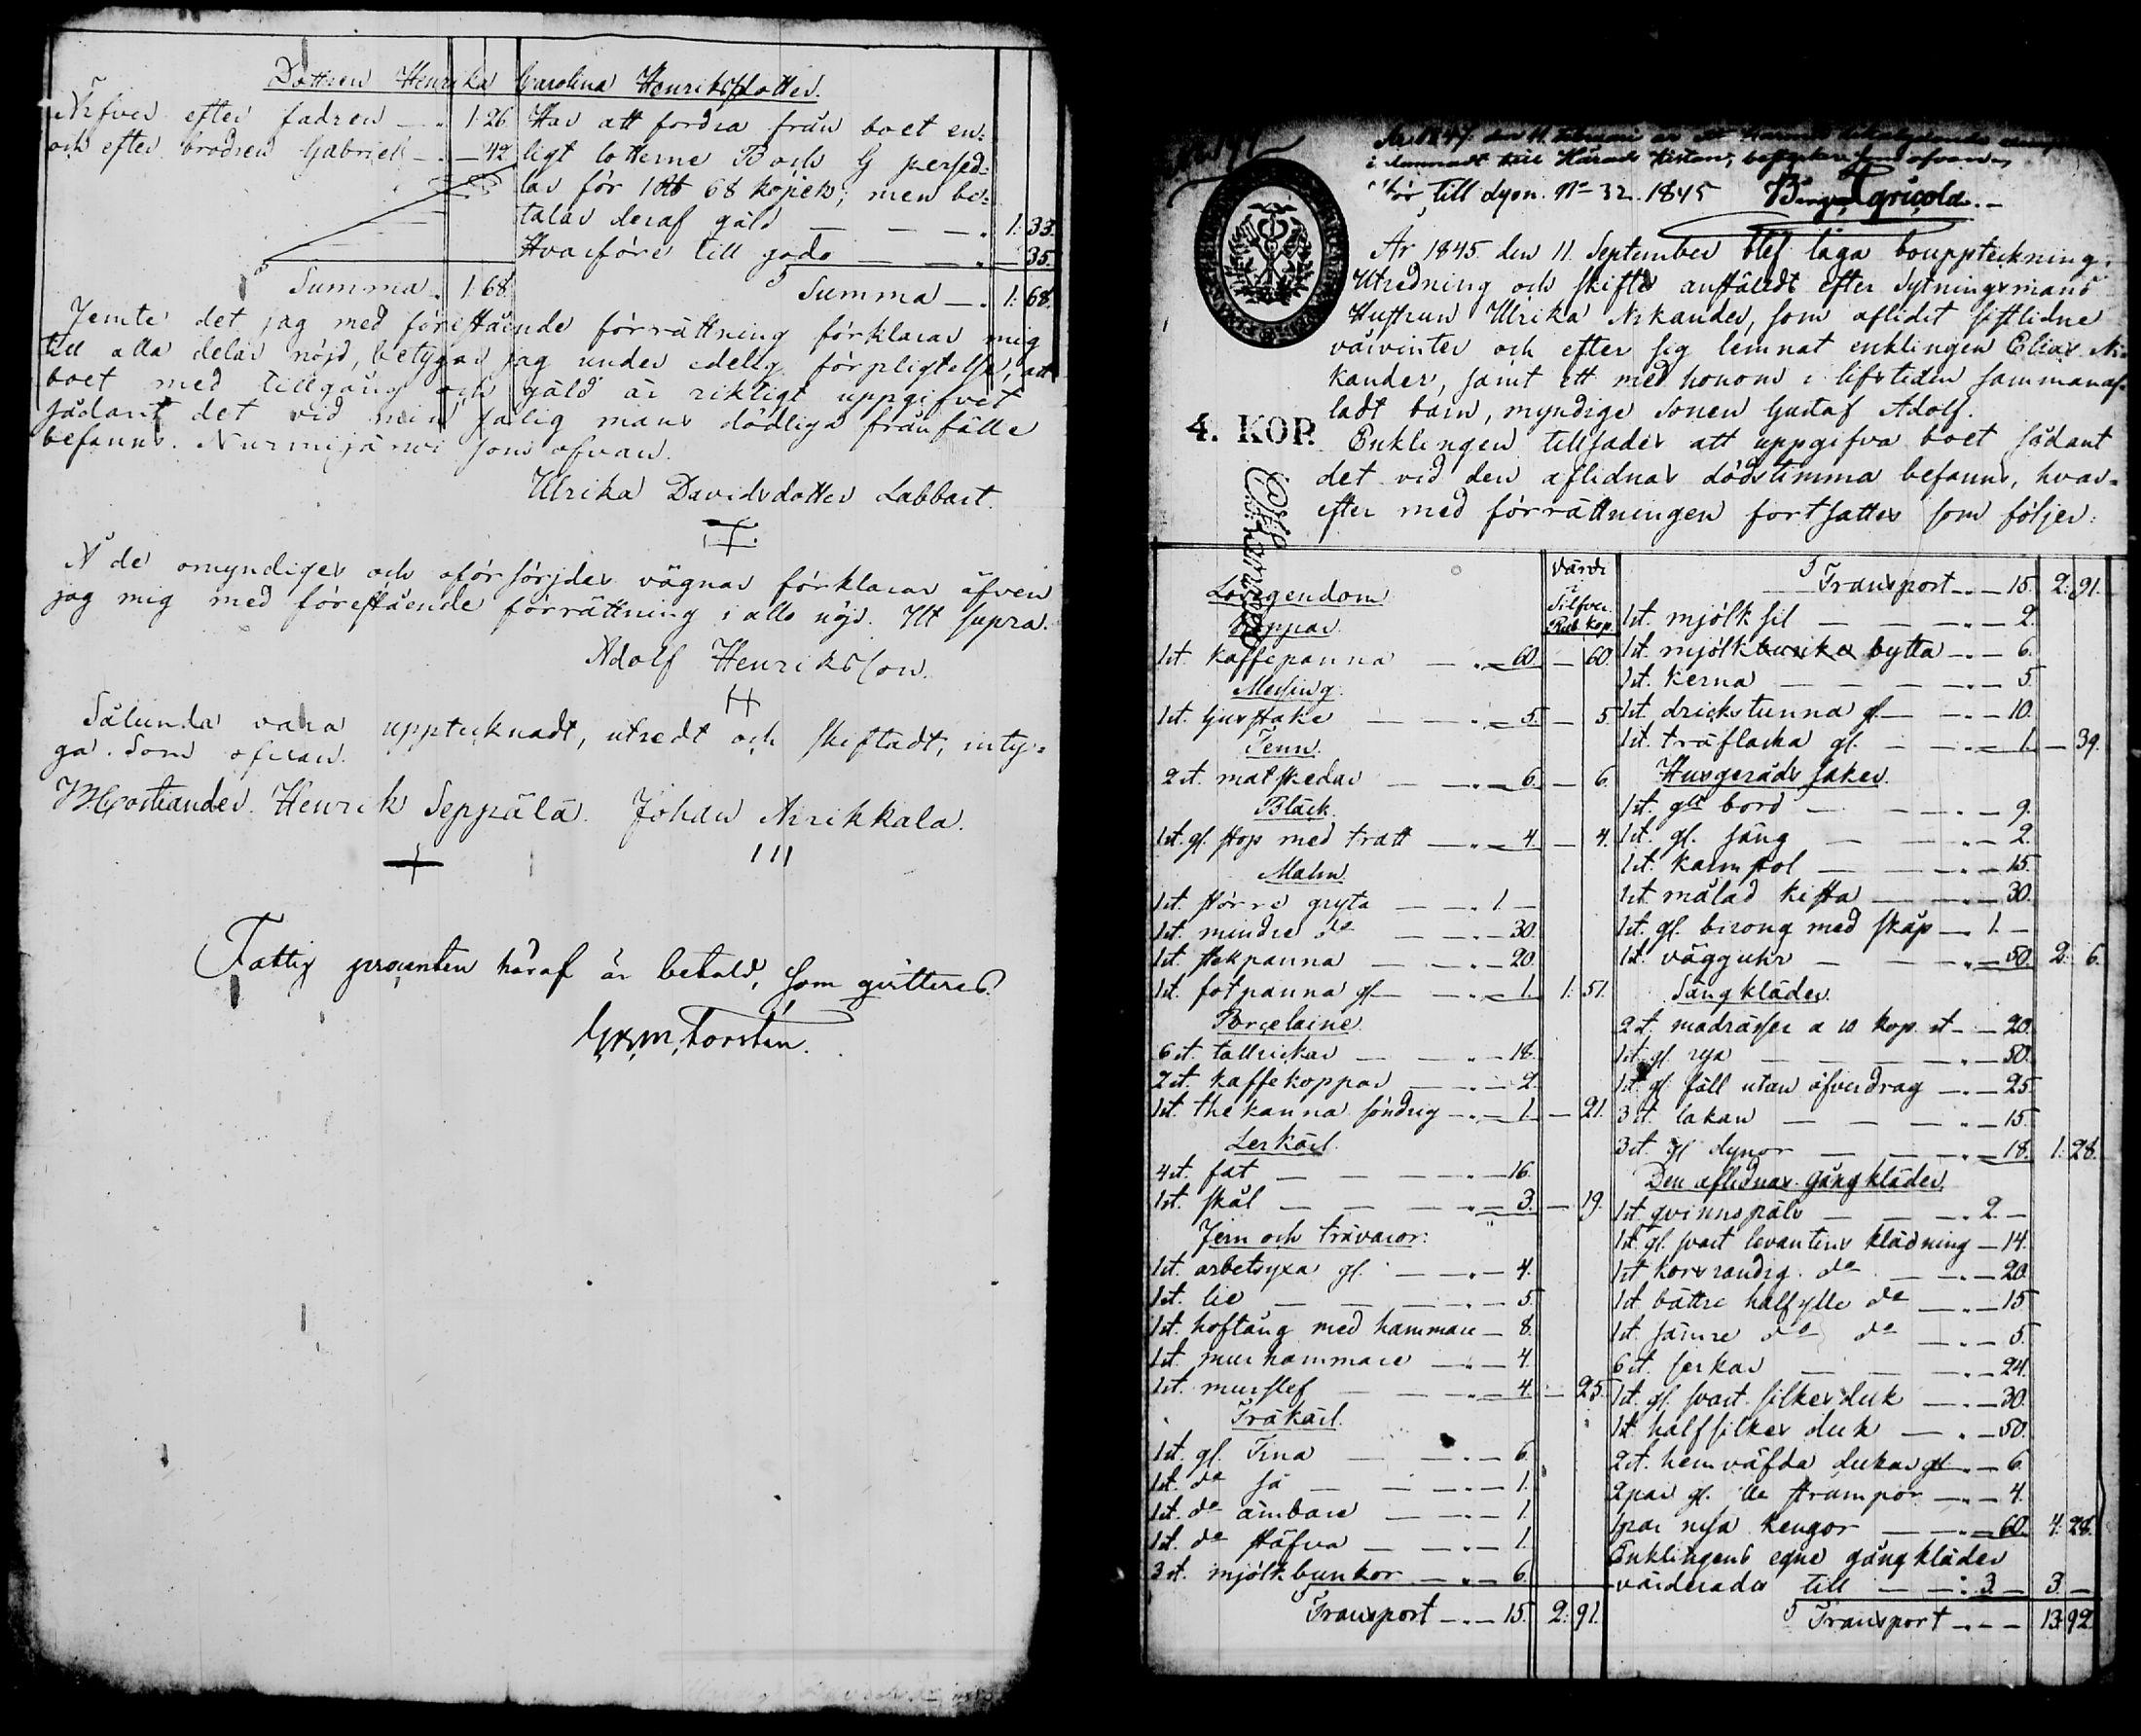 Dottren Henrika Carolina Henriksdotter.
Ärfver efter fadren — 1:26
och efter brodren Gabriel — 42
Summa. 1:68
Har att fordra från boet en:
ligt lotterne B och G persed:
lar för 1 Rb 68 kopek; men be:
talar deraf gäld — 1:33.
Hvarföre till godo — 35.
Summa — 1:68.
Jemte det jag med föreståënde förrättning förklarar mig
till alla delar nöjd, betygar jag under edelig förpligtelse, att
boet med tillgång och gäld är riktigt uppgifvet
sådant det vid min salig mans dödliga frånfälle
befanns. Nurmijärvi som ofvan.
Ulrika Davidsdotter Labbart.
Å de omyndiges och oförsörjdas vägnar förklarar äfven
jag mig med föreståënde förrättning i allo nöjd. Ut supra.
Adolf Henriksson.
Sålunda vara upptecknadt, utredt och skiftadt, inty:
ga. Som ofvan.
Henrik Seppälä. Johan Nirikkala.
Fattig procenten häraf är betald, som qvitteras.
Forstén.
År 1847 den 11 Februari
till Härads Kistan, som ofvan
till dyon. No 32. 1845 Agricola.
År 1845 den 11 September blef laga bouppteckning,
Utredning och skifte anstäldt efter Sytningsmans
Hustrun Ulrika Nikander, som aflidit sistlidne
vårvinter och efter sig lemnat enklingen Elias Ni:
kander, samt ett med honom i lifstiden sammanaf:
ladt barn, myndige Sonen Gustaf Adolf.
4. KOP.
Enklingen tillsades att uppgifva boet sådant
det vid den aflidnas dödstimma befanns, hvar:
efter med förrättningen fortsattes som följer:
Lösegendom
Värde
i
Silfver.
Rub. kop.
Koppar.
1st. kaffepanna — 60 — 60.
Messing.
1st. ljusstake — 5. — 5
Tenn.
2st. matskedar — 6. — 6.
Bläck.
1st. gl. stop med tratt — 4. — 4.
Malm.
1st. större gryta — 1. —
1st. mindre do — 30.
1st. stekpanna — 20.
1st. fotpanna gl — 1. 1:51.
Porcelaine.
6st. tallrickar — 18.
2st. kaffekoppar — 2.
1st. thekanna söndrig — 1. — 21.
Lerkäril.
4st. fat — 16.
1st. skål — 3. — 19.
Jern och trävaror:
1st. arbetsyxa gl. — 4.
1st. lie — 5.
1st. hoftång med hammare — 8.
1st. murhammare — 4.
1st. murslef — 4. — 25.
Träkäril.
1st. gl. Tina — 6.
1st. do så — 1.
1st. do ämbare — 1.
1st. do stäfva — 1.
3st. mjölkbunkor — 6.
Transport — 15. 2:91.
Transport — 15. 2:91.
1st. mjölk sil — 2.
1st. mjölk bytta — 6.
1st. kerna — 5.
1st. drickstunna gl — 10.
1st. träflaska gl. — 1. — 39.
Husgeråds saker.
1st. gl bord — 9.
1st. gl. säng — 2.
1st. karmstol — 15.
1st. målad kista — 30.
1st. gl. birong med skåp — 1. —
1st. vägguhr — 50. 2: 6.
Sängkläder.
2st. madrasser a 10 kop. st — 20.
1st. gl. rya — 50.
1st. gl. fäll utan öfverdrag — 25
3st. lakan — 15.
3st. gl dynor — 18. 1:28.
Den aflidnas gångkläder.
1st. qvinnspäls — 2. —
1st. gl. svart levantins klädning — 14.
1st korsrandig do — 20.
1st. bättre halfylle do — 15
1st. sämre do do — 5.
6st. serkar — 24.
1st. gl. svart silkesduk — 30.
1st. halfsilkes duk — 50.
2st. hemväfda dukar gl — 6.
2par gl. strumpor — 4.
1par nya kengor — 60. 4:28.
Enklingens egne gångkläder
värderades till — 3. — 3. —
Transport — 13:92.